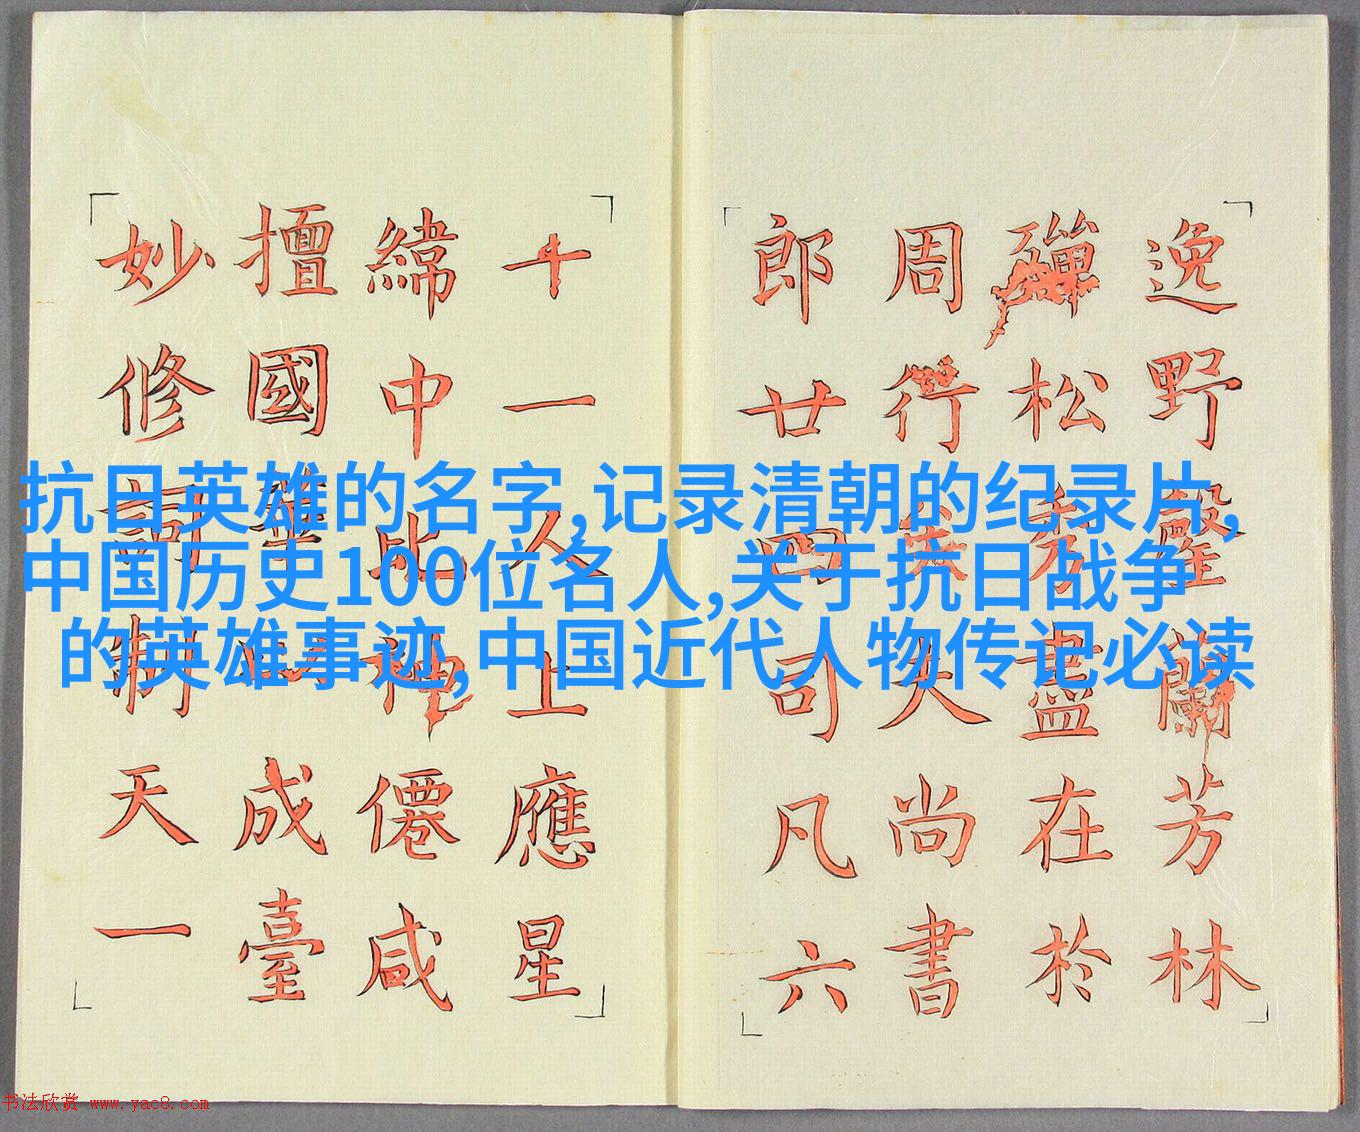 抗日英雄的名字,记录清朝的纪录片,
中国历史100位名人,关于抗日战争
的英雄事迹,中国近代人物传记必读
逸野蘭芳林
松盡在於
周夫尚書
郎廿四司凡六
十一人上應星
緯中此神僊咸
擅國成臺
妙修詞制天一
书法欣赏 www.yac8.com